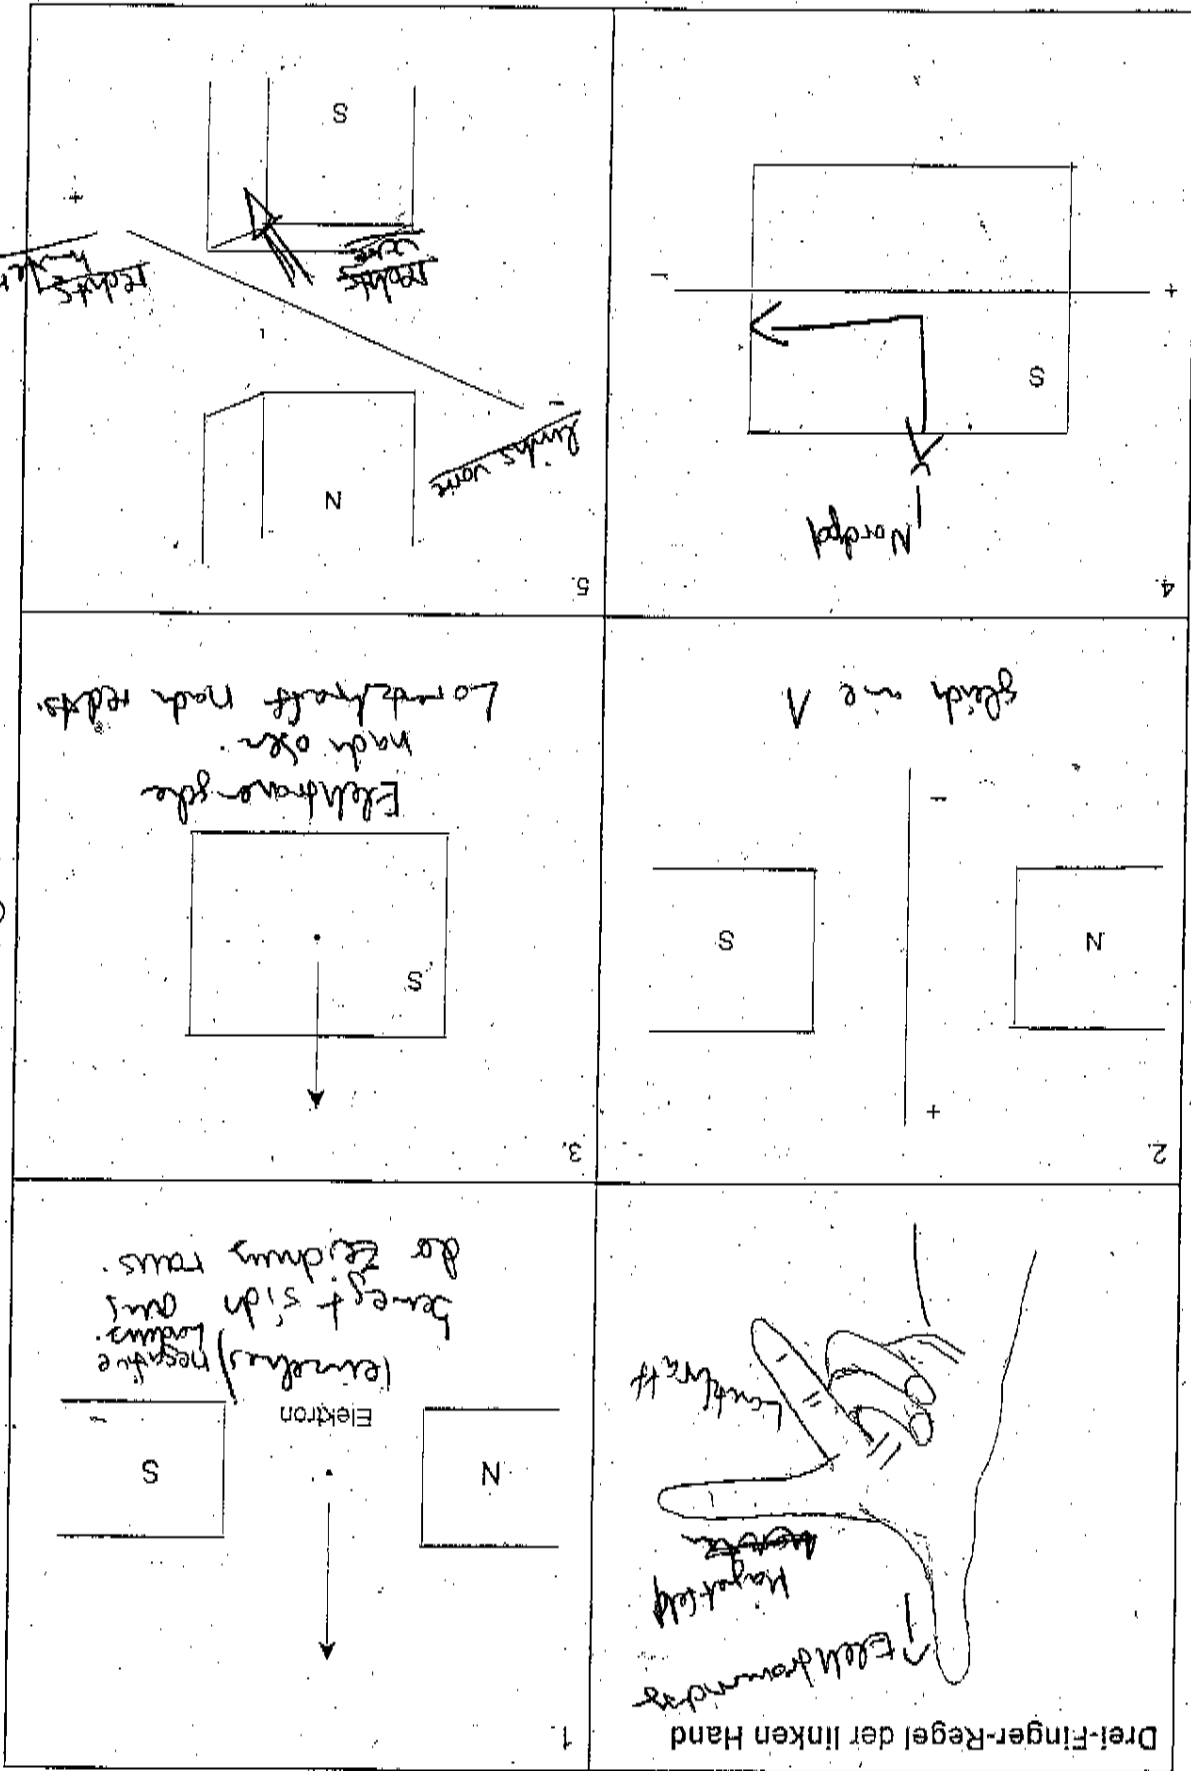 Drei-Finger-Regel der linken Hand
Elektronenrichtung
Magnetfeld
Lorentzkraft
1.
N
S
Elektron
(einzelnes) negative
Ladung.
bewegt sich aus
der Zeichnung raus.
2.
+
N
S
-
gleich wie 1
3.
S
Elektronen gehen
nach oben.
Lorentzkraft nach rechts.
4.
Nordpol
S
+
5.
N
-
links vorne
rechts
+
rechts hinten
S